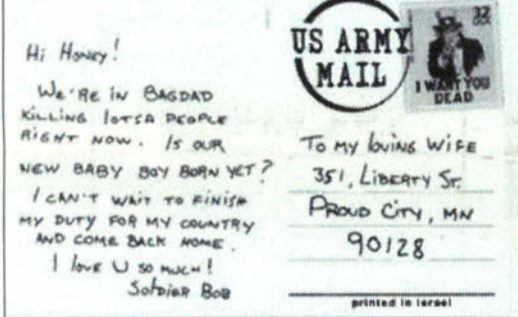 Hi Honey!
We're in Bagdad
killing lotsa people
right now. Is our
new baby boy born yet?
I can't wait to finish
my duty for my country
and come back home.
I love U so much!
Soldier Bob
US ARMY
MAIL
32
USA
I WANT YOU
DEAD
To my loving Wife
351, Liberty St.
Proud City, MN
90128
printed in Israel